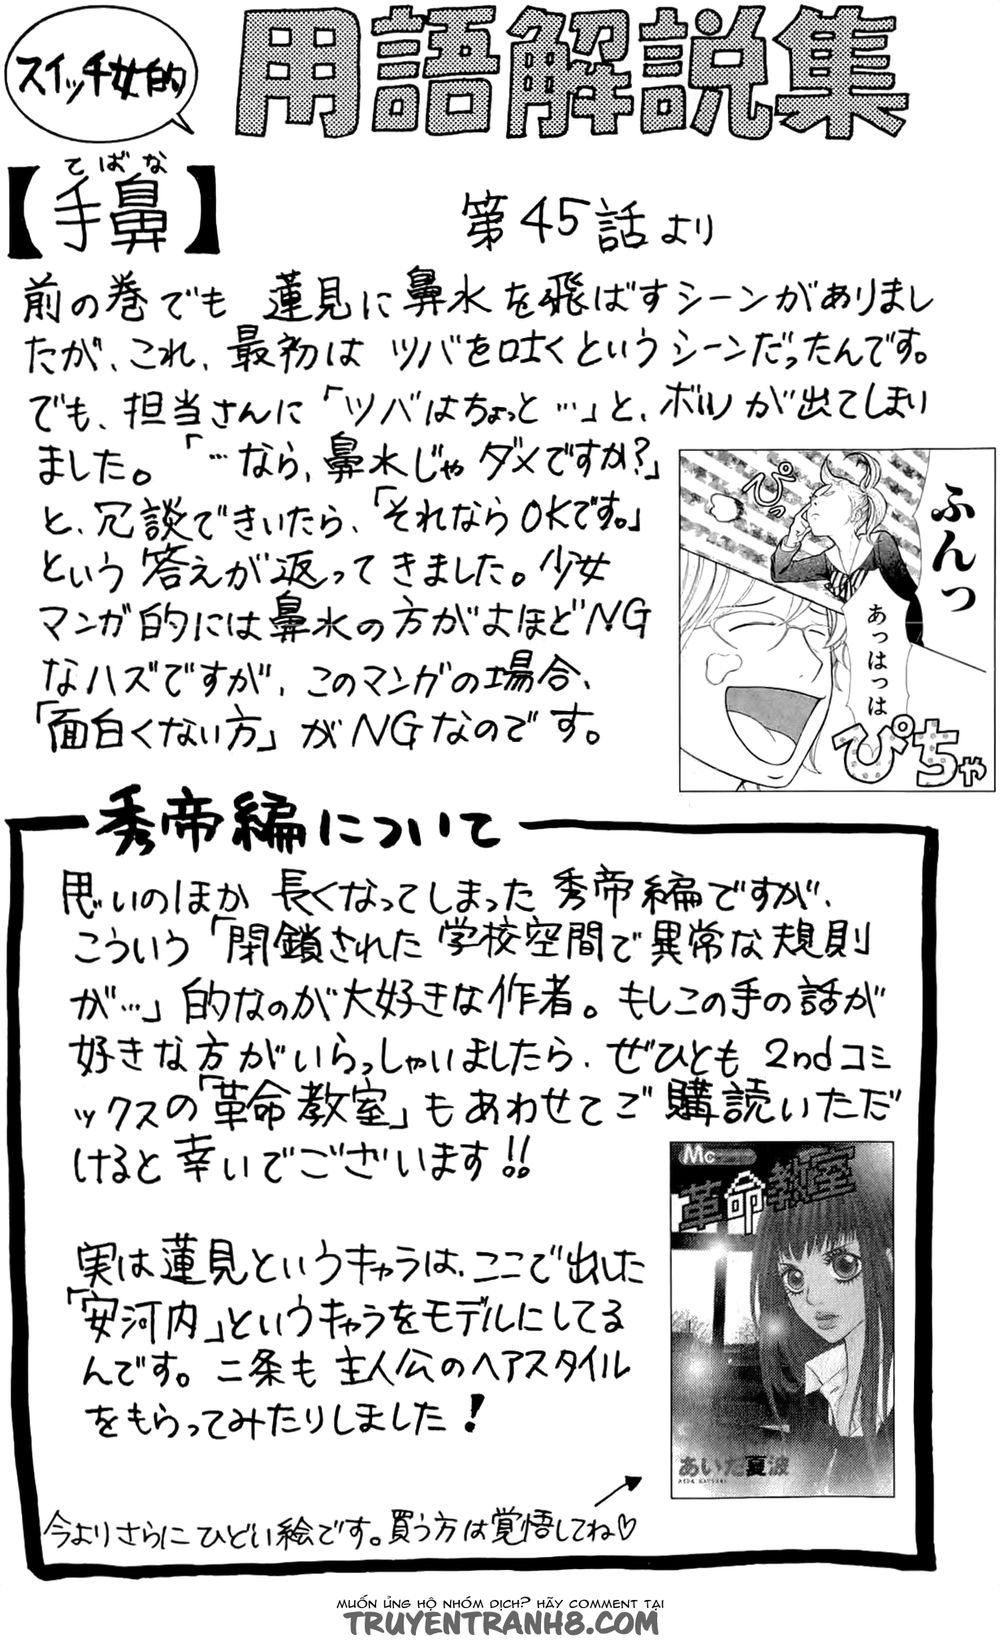 スイッチ女的
用語解説集
てばな
【手鼻】
第45話より
前の巻でも 蓮見に鼻水を飛ばすシーンがありまし
たが、これ、最初は ツバを吐くというシーンだったんです。
でも、担当さんに「ツバはちょっと…」と、ボツが出てしまい
ました。「…なら、鼻水じゃダメですか?」
と、冗談できいたら、「それならOKです。」
という答えが返ってきました。少女
マンガ的には鼻水の方がよほどNG
なハズですが、このマンガの場合、
「面白くない方」がNGなのです。
ぴっ
ふんっ
あっはっは
ぴちゃ
秀帝編について
思いのほか 長くなってしまった 秀帝編ですが、
こういう「閉鎖された 学校空間で異常な規則
が…」的なのが大好きな作者。もしこの手の話が
好きな方がいらっしゃいましたら、ぜひとも 2ndコミ
ックスの「革命教室」もあわせてご購読いただ
けると幸いでございます!!
Mc
革命教室
あいだ夏波
実は蓮見というキャラは、ここで出した
「安河内」というキャラをモデルにしてる
んです。二条も 主人公のヘアスタイル
をもらってみたりしました!
今よりさらにひどい絵です。買う方は覚悟してね♡
MUỐN ỦNG HỘ NHÓM DỊCH? HÃY COMMENT TẠI
TRUYENTRANH8.COM